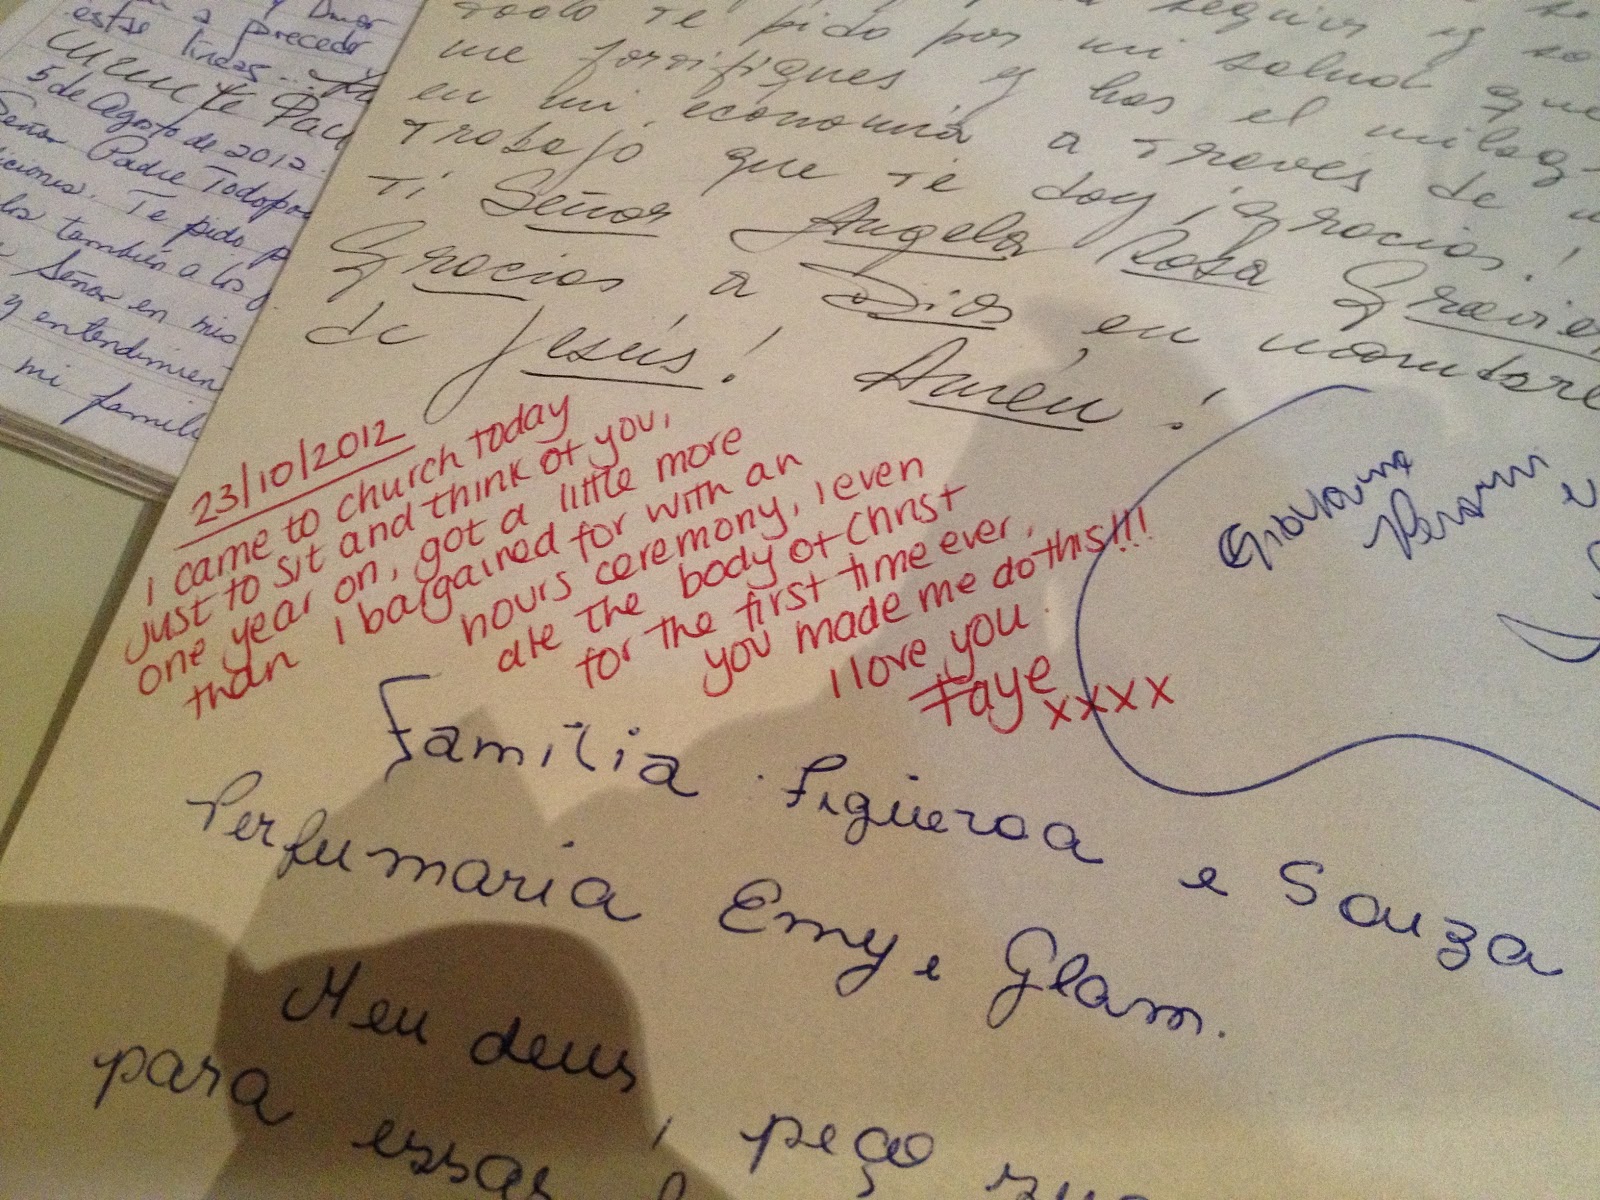 y Amor
a preceder
estas lineas..
5 de Agosto de 2012.
Señor Padre Todopo
Te pido p
también a los
Señor en mis
y entendimien
mi famili
todo te pido por mi salud que
me fortifiques y has el milag-
en mi economía a través de
trabajo que te doy ¡gracias!
Ti Señor Angela Rosa
Gracias a Dios en nombre
de Jesús! Amén!
23/10/2012
I came to church today
just to sit and think of you,
one year on, got a little more
than I bargained for with an
hours ceremony, I even
ate the body of Christ
for the first time ever,
you made me do this!!!
I love you
Faye
xxxx
Giovanna
Familia Figueroa e Souza
Perfumaria Emy e Glam.
Meu deus, peço
para essas